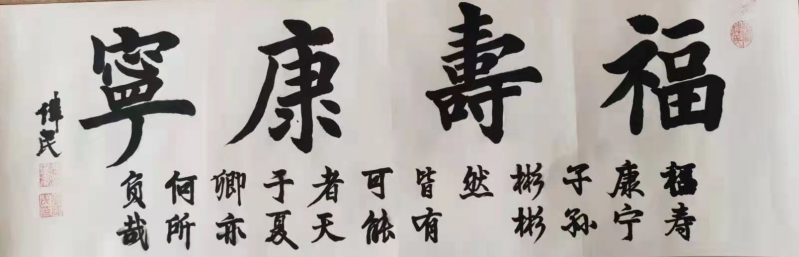 福壽康寧
福寿
康宁
子孙
彬彬
然
皆有
可能
者天
于夏
卿亦
何所
负哉
偉民